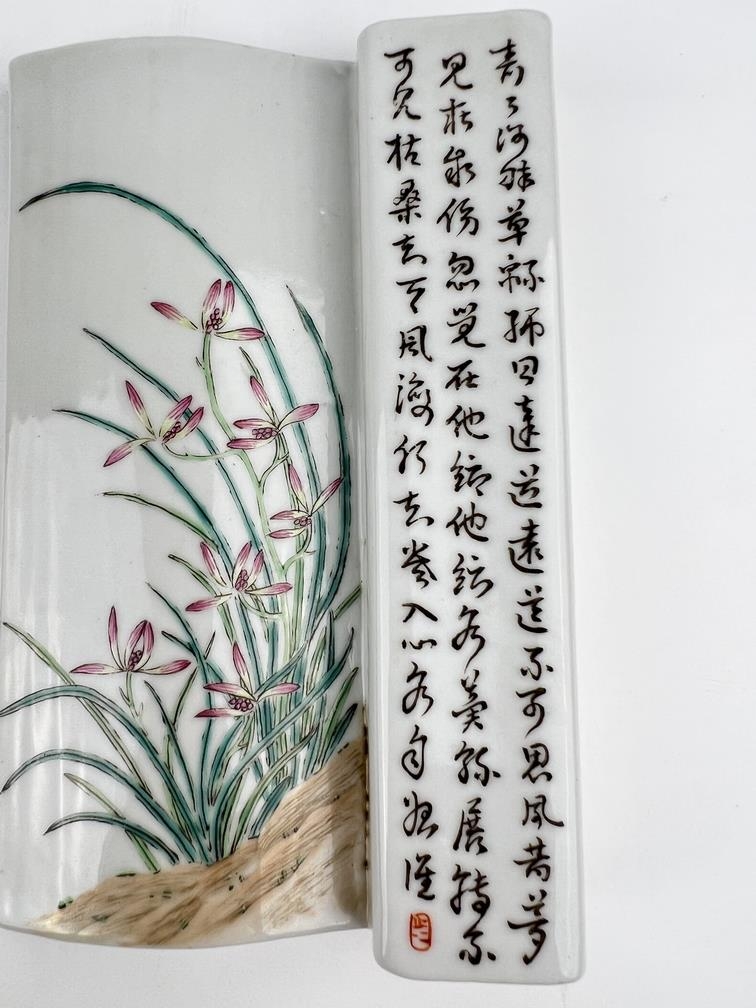 青々河畔草綿綿思遠道遠道不可思夙昔夢
見在我傍忽覺在他鄉他鄉各異縣展轉不
可見枯桑知天風海水知寒入門各自媚誰